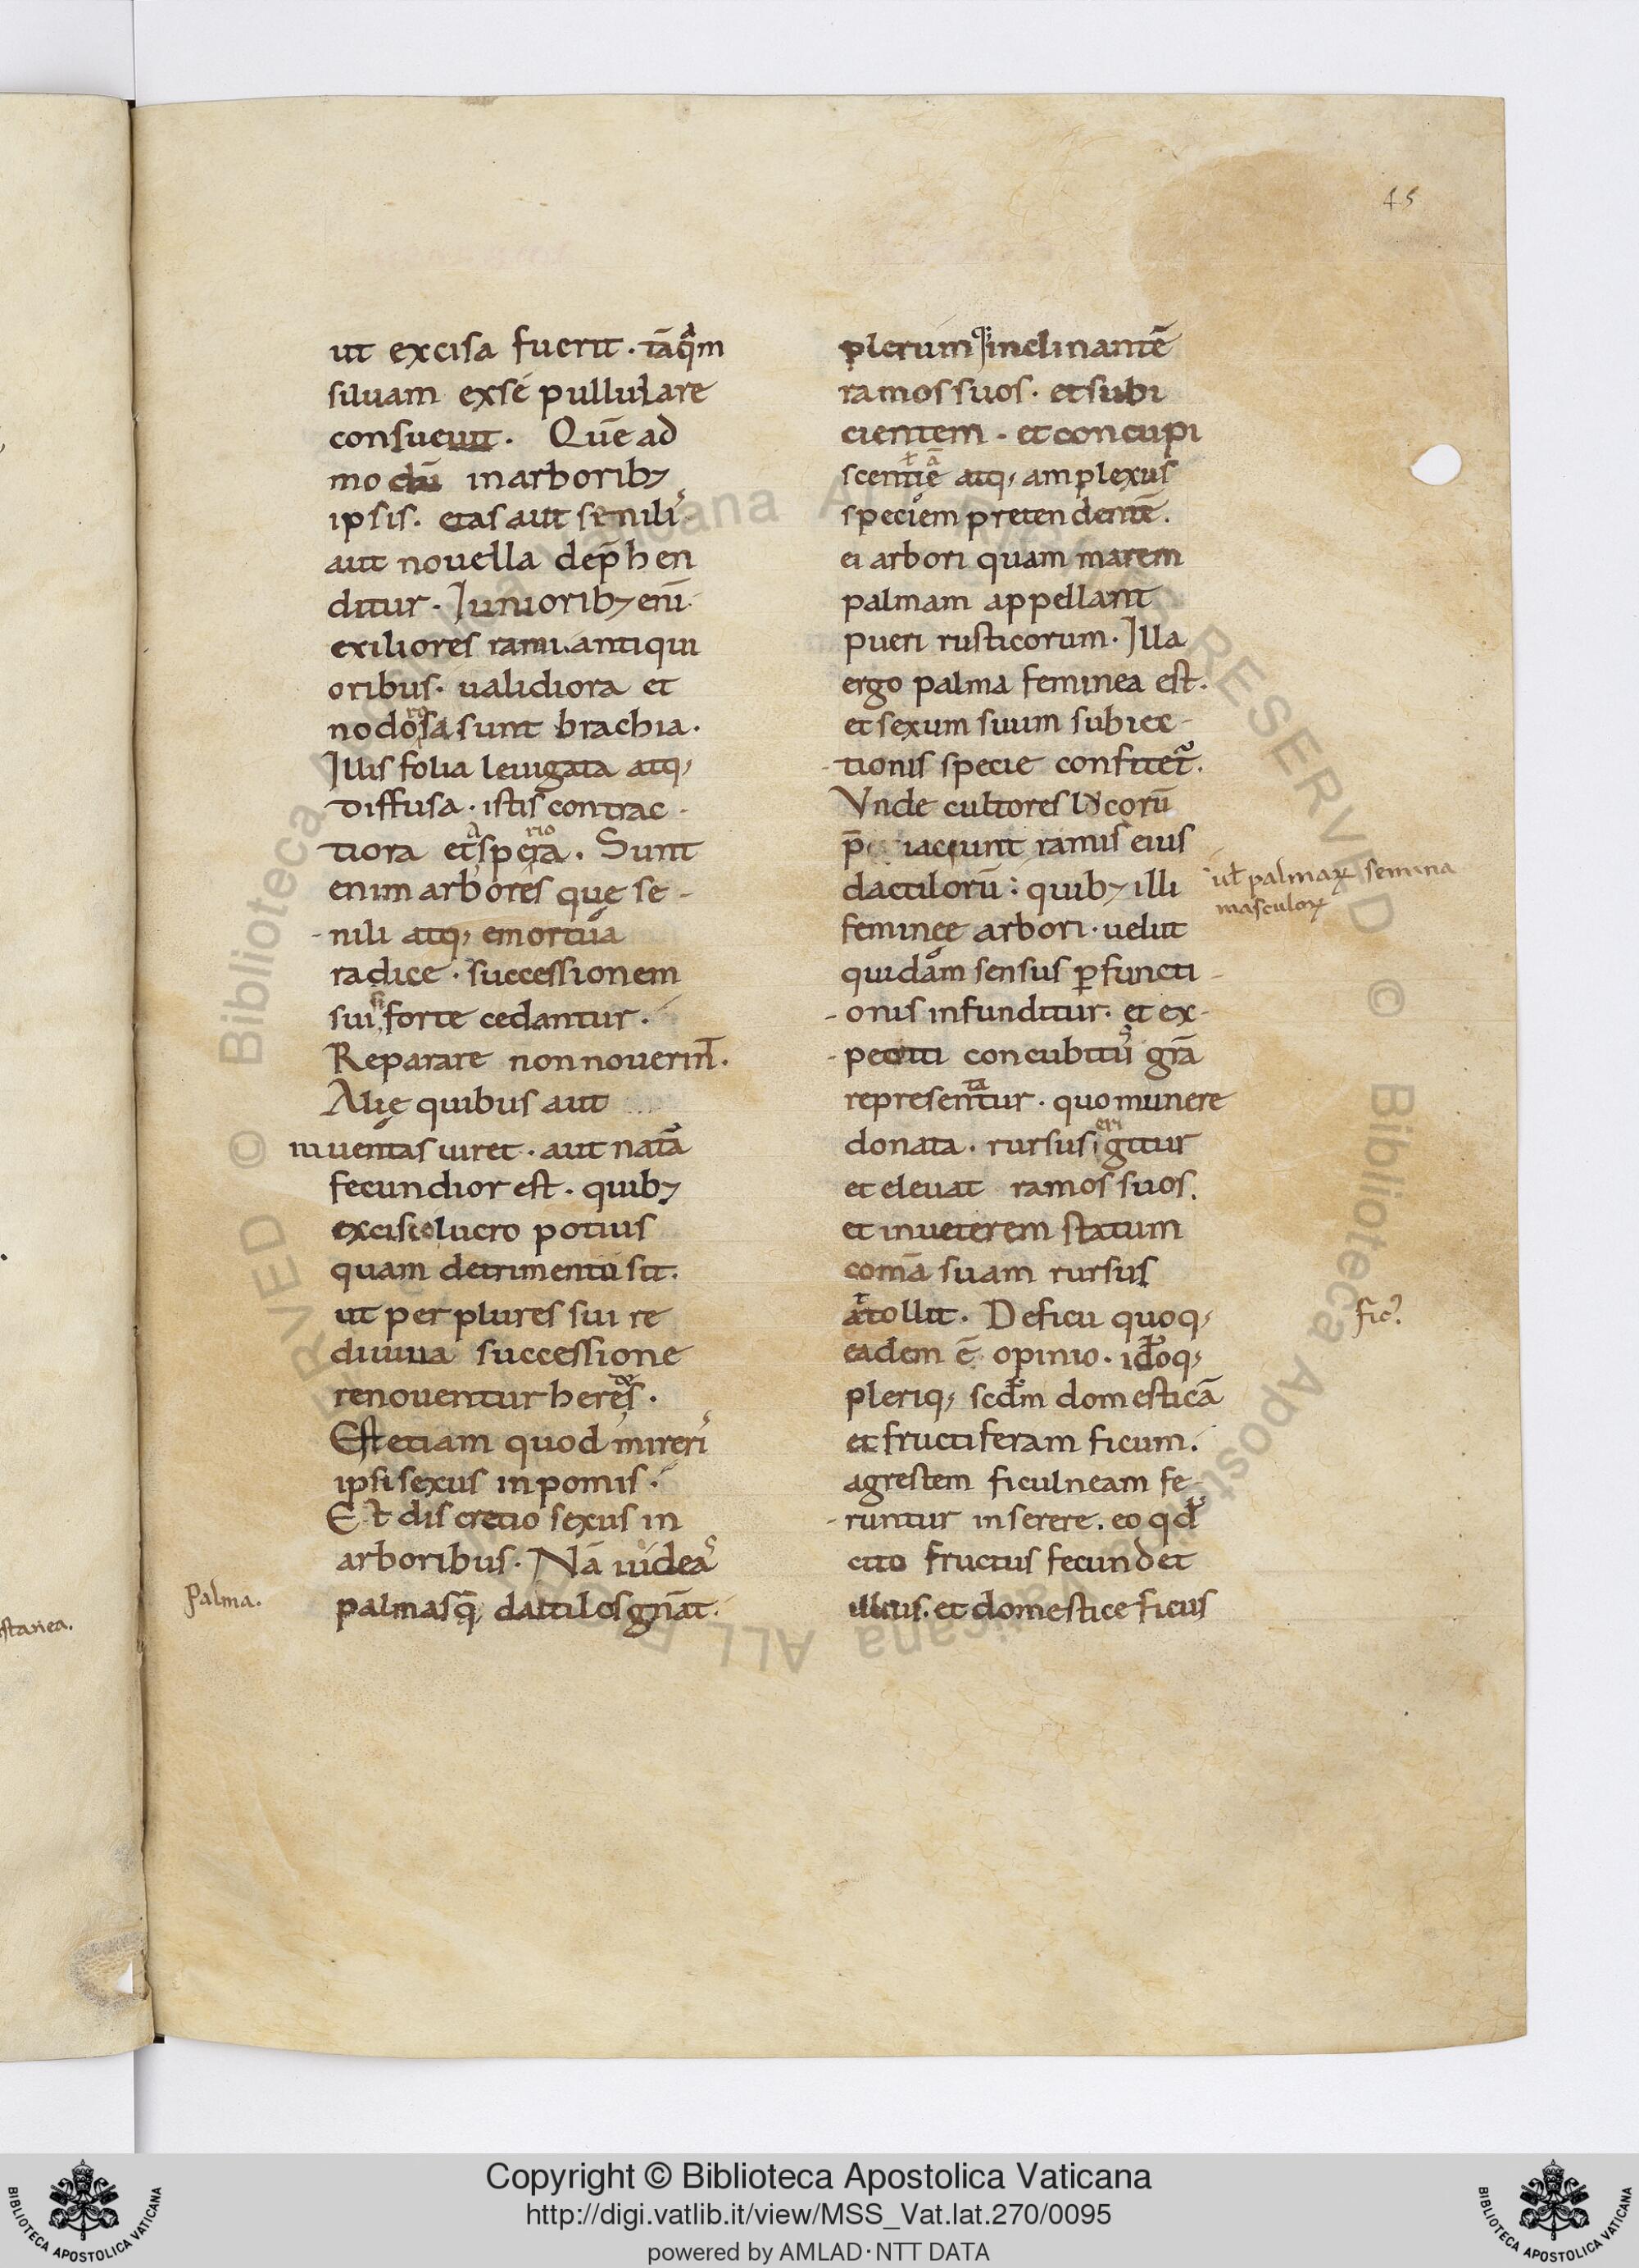 45
ut excisa fuerit. tāq̄m
siluam exse pullulare
consueuit. Quē ad
modū in arborib;
ipsis. etas aut senilis
aut nouella dep̄hen
ditur. Iuniorib; eni
exiliores rami. antiqui
oribus. ualidiora et
nodosa sunt brachia.
ro
Illis folia leuigata atq;
diffusa. istis contrac-
tiora et aspera. Sunt
rio
enim arbores quę se-
nili atq; emortua
radice. successionem
sui si forte cedantur.
Reparare non nouerint̄.
Alię quibus aut
iuuentas uiret. aut natā
fecundior est. quib;
excisio lucro potius
quam detrimentū sit.
ut per plures sui re
diuiua successione
renouentur heredes.
Est etiam quod mireris
ipsi sexus in pomis.
Est discretio sexus in
arboribus. Nā uideas
Palma.
palmasq̄; dactilos gn̄at.
plerumq; inclinantē
ramos suos. et subi
cientem. et concupi
scentię atq; amplexus
speciem pretendentē.
ei arbori quam marem
palmam appellant
pueri rusticorum. Illa
ergo palma feminea est.
et sexum suum subiec-
tionis specie confitet.
Vnde cultores lucorū
iaciunt ramis eius
dactilorū: quib; illi
ul palmaꝝ semina
masculoꝝ
feminee arbori. uelut
quidam sensus ꝑfuncti-
onis infunditur. et ex-
petiti concubitus grā
representatur. quo munere
donata. rursus erigitur
et eleuat ramos suos.
et in ueterem statum
comā suam rursus
attollit. De ficu quoq;
fic?
eadem ē opinio. idoq;
pleriq; scdm domesticā
et fructiferam ficum.
agrestem ficulneam fe-
runtur inserere. eo qd
cito fructus fecundet
illius. et domestice ficus
stanea.
Copyright © Biblioteca Apostolica Vaticana
http://digi.vatlib.it/view/MSS_Vat.lat.270/0095
powered by AMLAD·NTT DATA
BIBLIOTECA APOSTOLICA VATICANA
BIBLIOTECA APOSTOLICA VATICANA